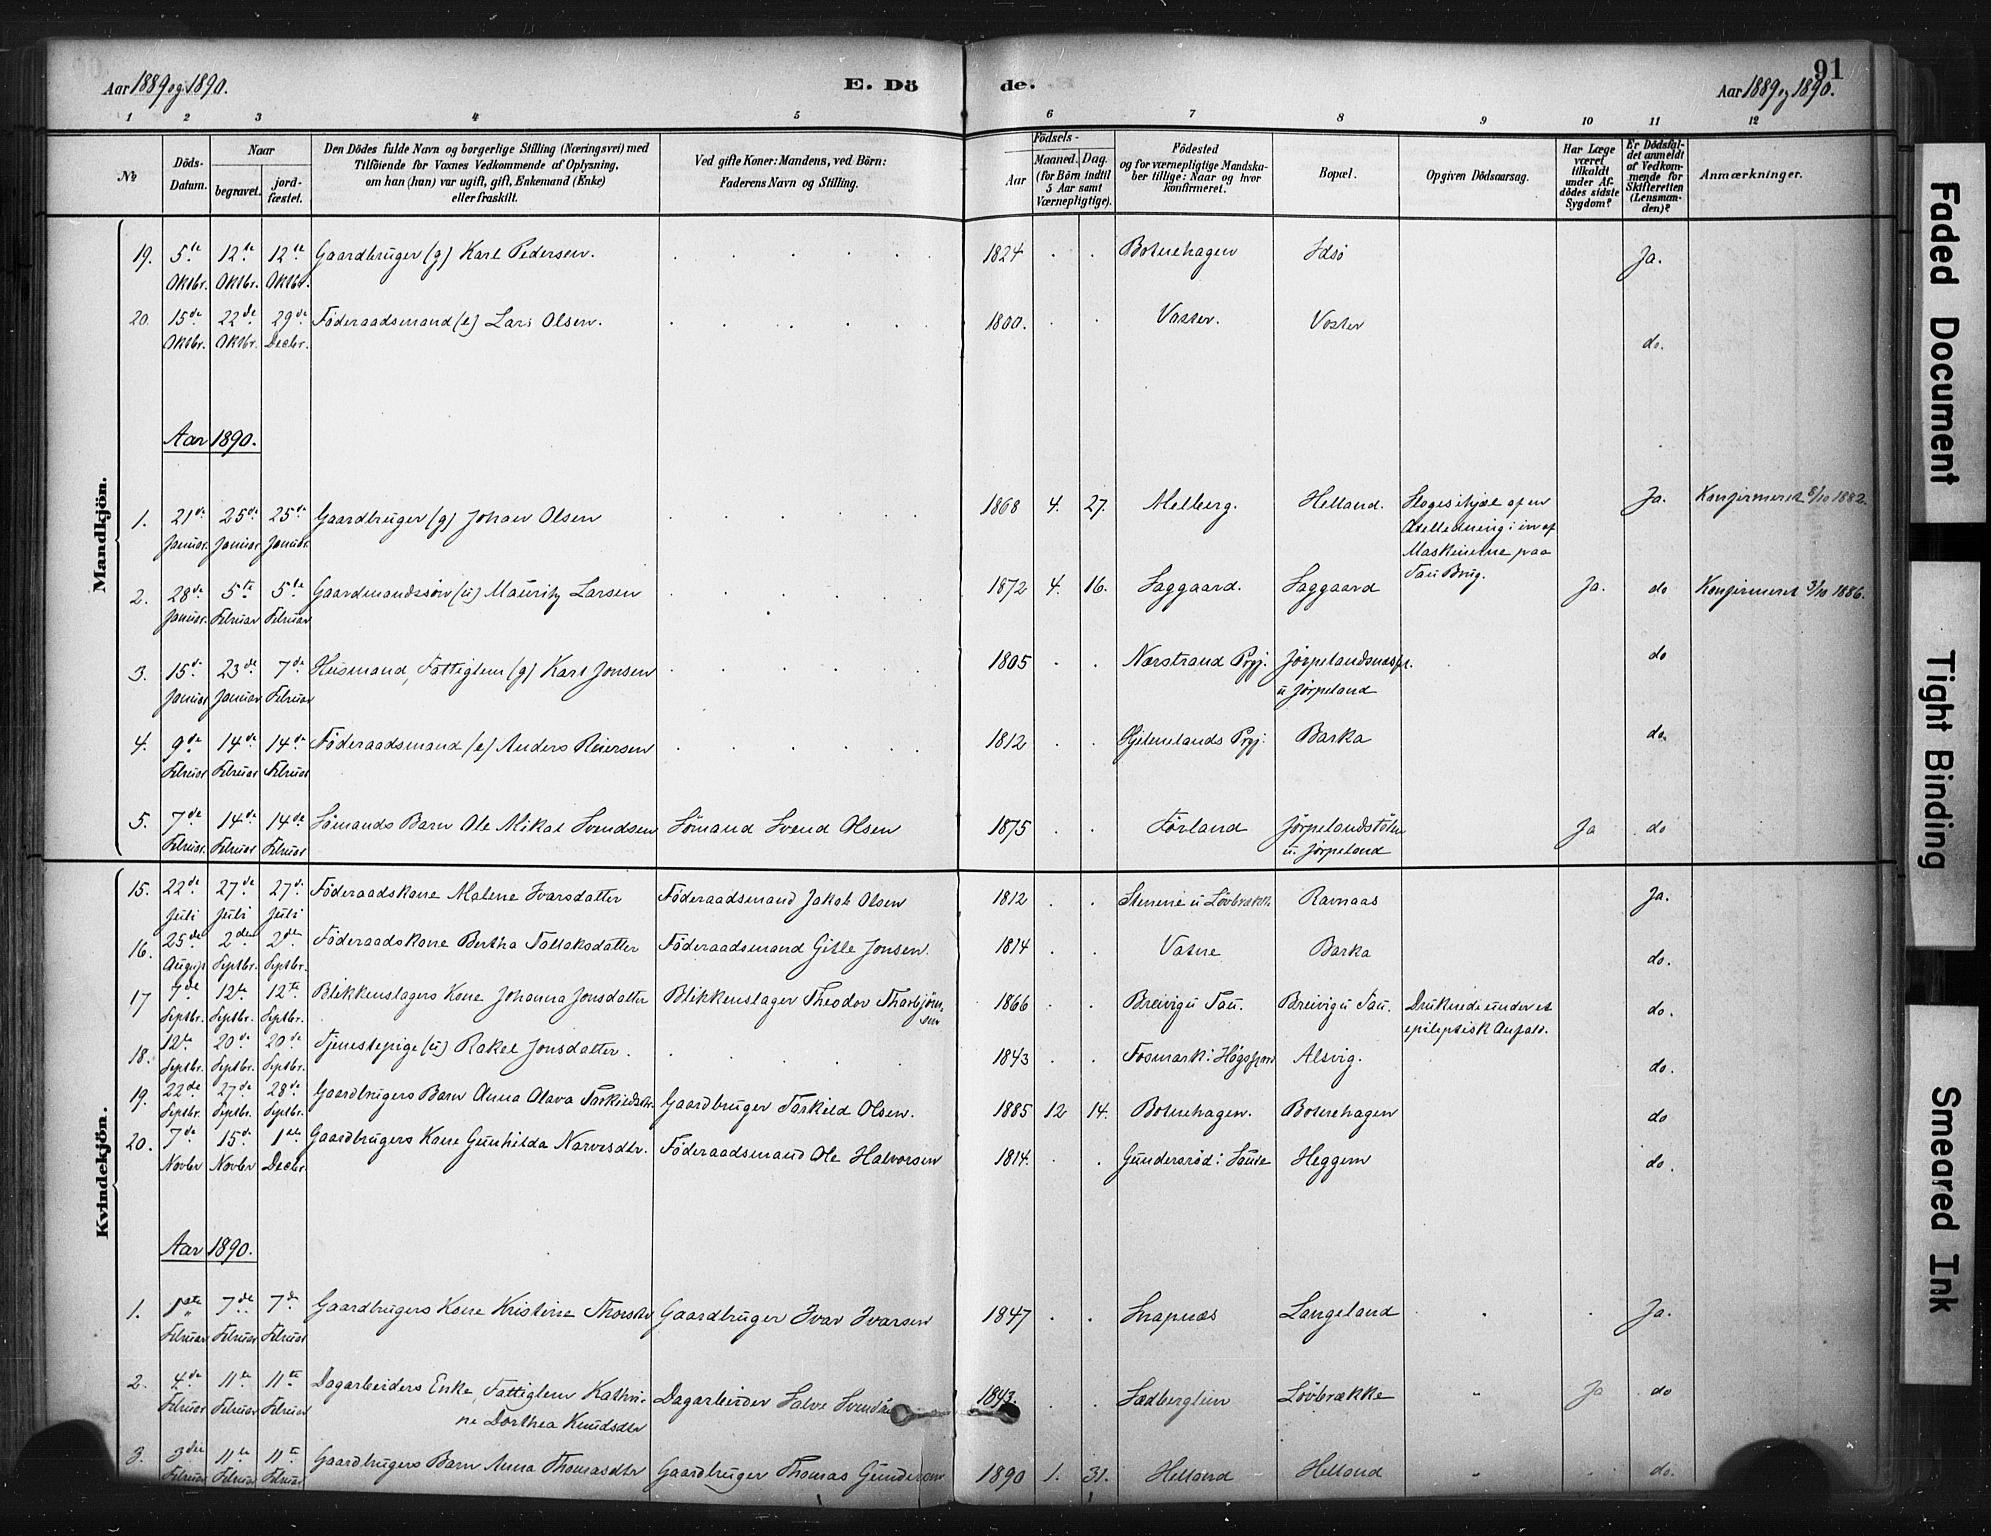 Aar 1889 og 1890.
E. Dö
de.
91
Aar 1889 og 1890.
1 2 3 4 5 6 7 8 9 10 11 12
№
Döds-
Datum.
Naar
begravet.
jord-
fæstet.
Den Dödes fulde Navn og borgerlige Stilling (Næringsvei) med
Tilföiende for Voxnes Vedkommende af Oplysning,
om han (hun) var ugift, gift, Enkemand (Enke)
eller fraskilt.
Ved gifte Koner: Mandens, ved Börn:
Faderens Navn og Stilling.
Födsels-
Aar
Maaned. Dag.
(for Börn indtil
5 Aar samt
Værnepligtige).
Födested
og for værnepligtige Mandska-
ber tillige: Naar og hvor
konfirmeret.
Bopæl.
Opgiven Dödsaarsag.
Har Læge
været
tilkaldt
under Af-
dödes sidste
Sygdom?
Er Dödsfal-
det anmeldt
af Vedkom-
mende for
Skifteretten
(Lensman-
den)?
Anmærkninger.
Mandkjön.
19. 5te 12te 12te Gaardbruger (g) Karl Pedersen. 1824 Botnehagen Idsö Ja.
Oktbr. Oktbr. Oktbr.
20. 15de 22de 29de Föderaadsmand (e) Lars Olsen. 1800. Vaster. Voster do.
Oktbr. Oktbr. Decbr.
Aar 1890.
1. 21de 25de 25de Gaardbruger (g) Johan Olsen 1868 4. 27. Melberg. Helland. Ja. Konfirmeret 8/10 1882.
Januar. Januar Januar
Sloges ihjæl af en
Axelledning i en af
Maskinerne paa
Tau Brug.
2. 28de 5te 5te Gaardmandssön (u) Mauritz Larsen 1872 4. 16. Saggaard. Saggaard Ja. do Konfirmeret 3/10 1886.
Januar. Februar Februar
3. 15de 23de 7de Husmand, Fattiglem (g) Karl Jonsen 1805 Nærstrand Prgj. Jörpelandsnæs do
Januar Januar Februar u Jörpeland
4. 9de 14de 14de Föderaadsmand (e) Anders Reiersen 1812 Hjelmelands Prgj. Barka do.
Februar Februar Februar
5. 7de 14de 14de Sömands Barn Ole Mikal Svendsen Sömand Svend Olsen 1875 Förland Jörpelandstölen Ja do
Februar. Februar Februar u. Jörpeland
Kvindekjön.
15. 22de 27de 27de Föderaadskone Malene Ivarsdatter Föderaadsmand Jakob Olsen 1812 Stenene u Lövbrække Ravnaas Ja.
Juli Juli Juli
16. 25de 2den 2den Föderaadskone Bertha Tollaksdatter Föderaadsmand Gitle Jonsen. 1814 Vatne Barka do.
August Septbr. Septbr.
17 7de 12te 12te Blikkenslagers Kone Johanna Jonsdatter Blikkenslager Theodor Thorbjörn- 1866 Breivig u Tau. Breivig u Tau. Druknede under et do.
Septbr. Septbr. Septbr. sen epileptisk Anfald.
18. 12te 20de 20de Tjenestepige (u) Rakel Jonsdatter. 1843 Fosmark i Högsfjord Alsvig. do.
Septbr. Septbr. Septbr.
19. 22de 27de 28de Gaardbrugers Barn Anna Olava Torkildsdtr. Gaardbruger Torkild Olsen. 1885 12 14. Botnehagen. Botnehagen do
Septbr. Septbr. Septbr.
20. 7de 15de 1ste Gaardbrugers Kone Gunhilda Narvesdtr. Föderaadsmand Ole Halvorsen 1814. Gundersröd i Saude Heggem do.
Novbr Novbr Decbr
Aar 1890.
1. 1ste 7de 7de Gaardbrugers Kone Kristine Gaardbruger Ivar Ivarsen 1847 Snapnæs Langeland Ja.
Februar Februar Februar
2. 4de 11te 11te Dagarbeiders Enke, Fattiglem Kathri- Dagarbeider Salve 1843. Sædberglein Lövbrække Ja do
Februar Februar Februar ne Dorthea Knudsdtr
3. 3die 11te 11te Gaardbrugers Barn Anna Thomasdtr Gaardbruger Thomas Gundersen 1890 1. 31. Helland Helland do.
Februar Februar Februar
Faded Document
Tight Binding
Smeared Ink